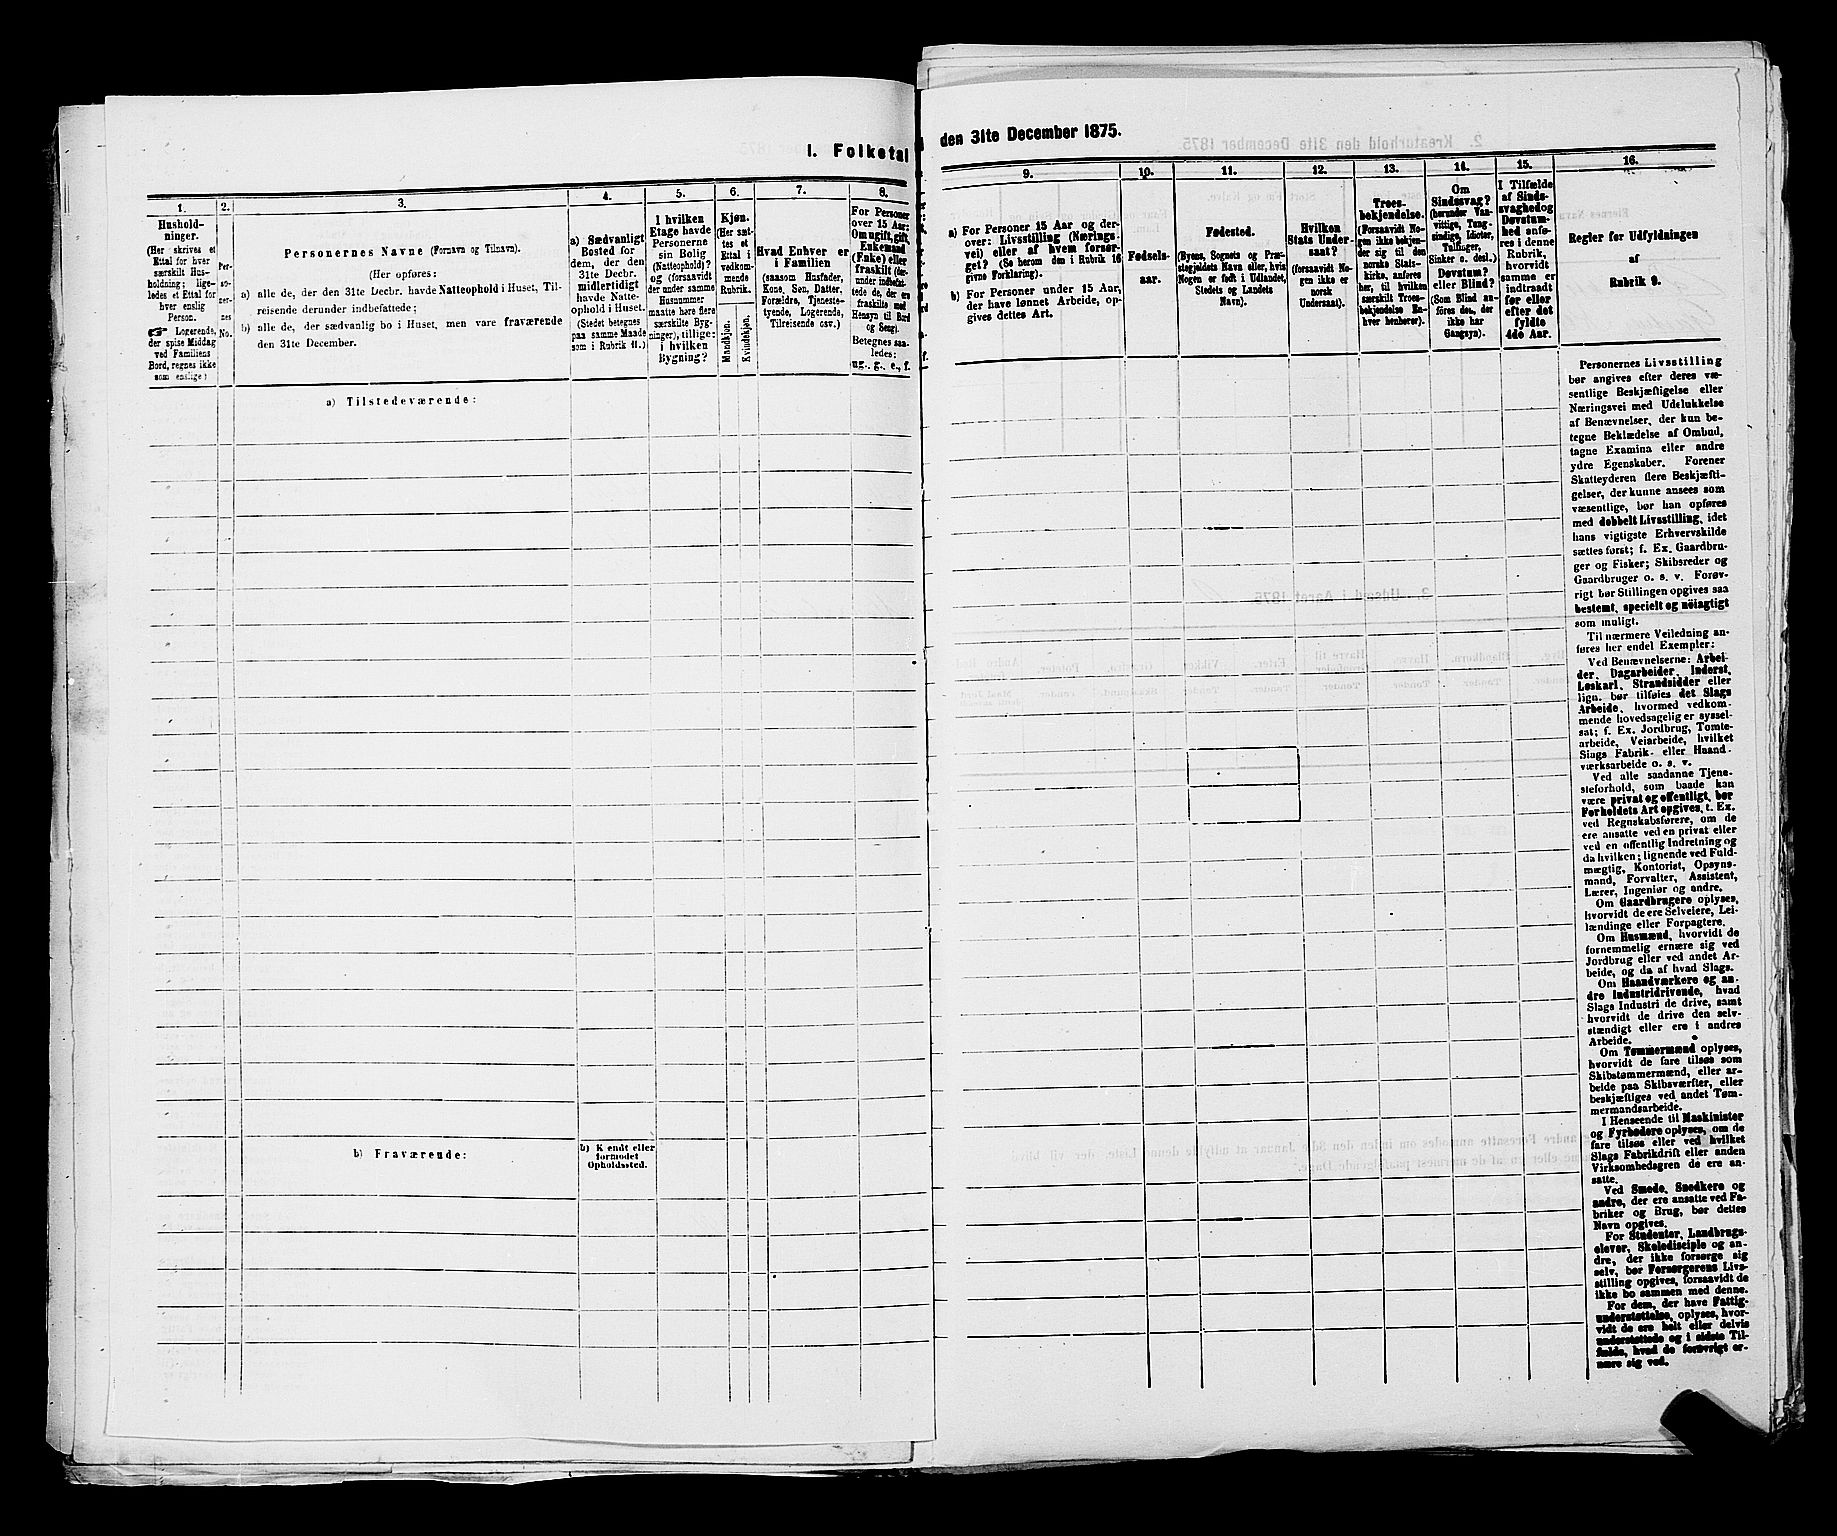 I. Folketal
den 31te December 1875.
1.
Hushold-
ninger.
(Her skrives et
Ettal for hver
særskilt Hus-
holdning; lige-
ledes et Ettal for
hver enslig
Person.
☞ Logerende,
der spise Middag
ved Familiens
Bord, regnes ikke
som enslige.)
2.
Per-
so-
ner-
nes
No.
3.
Personernes Navne (Fornavn og Tilnavn).
(Her opføres:
a) alle de, der den 31te Decbr. havde Natteophold i Huset, Til-
reisende derunder indbefattede;
b) alle de, der sædvanlig bo i Huset, men vare fraværende
den 31te December.
4.
a) Sædvanligt
Bosted for
dem, der den
31te Decbr.
midlertidigt
havde Natte-
ophold i Huset.
(Stedet betegnes
paa samme Maade
som i Rubrik 11.)
5.
I hvilken
Etage havde
Personerne
sin Bolig
(Natteophold)?
og (forsaavidt
der under samme
Husnummer
maatte høre flere
særskilte Byg-
ninger), tillige:
i hvilken
Bygning?
6.
Kjøn.
(Her sæt-
tes et
Ettal i
vedkom-
mende
Rubrik.
Mandkjøn.
Kvindekjøn.
7.
Hvad Enhver er
i Familien
(saasom Husfader,
Kone, Søn, Datter,
Forældre, Tjeneste-
tyende, Logerende,
Tilreisende osv.)
8.
For Personer
over 15 Aar:
Om ugift, gift,
Enkemand
(Enke) eller
fraskilt (der-
under indbefat-
tede de, der ere
fraskilte med
Hensyn til Bord
og Seng).
Betegnes saa-
ledes:
ug., g., e., f.
a) Tilstedeværende:
b) Fraværende:
b) Kjendt eller
formodet
Opholdssted.
9.
a) For Personer 15 Aar og der-
over: Livsstilling (Nærings-
vei) eller af hvem forsør-
get? (Se herom den i Rubrik 16
givne Forklaring).
b) For Personer under 15 Aar,
der have lønnet Arbeide, op-
gives dettes Art.
10.
Fødsels-
aar.
11.
Fødested.
(Byens, Sognets og Præ-
stegjeldets Navn eller, hvis
Nogen er født i Udlandet,
Stedets og Landets
Navn).
12.
Hvilken
Stats Under-
saat?
(forsaavidt No-
gen ikke er
norsk
Undersaat).
13.
Troes-
bekjendelse.
(Forsaavidt No-
gen ikke bekjen-
der sig til den
norske Stats-
kirke, anføres
her, til hvilken
særskilt Troes-
bekjendelse En-
hver henhører).
14.
Om
Sindssvag?
(herunder Van-
vittige, Tung-
sindige, Idioter,
Tullinger,
Sinker o. desl.)
Døvstum?
eller Blind?
(Som Blind an-
føres den, der
ikke har
Gangsyn).
15.
I Tilfælde
af Sinds-
svaghed og
Døvstum-
hed anfø-
res i denne
Rubrik,
hvorvidt
samme er
indtraadt
før eller
efter det
fyldte
4de Aar.
16.
Regler for Udfyldningen
af
Rubrik 9.
Personernes Livsstilling
bør angives efter deres væ-
sentlige Beskjæftigelse eller
Næringsvei med Udelukkelse
af Benævnelser, der kun be-
tegne Beklædelse af Ombud,
tagne Examina eller andre
ydre Egenskaber. Forener
Skatteyderen flere Beskjæfti-
gelser, der kunne ansees som
væsentlige, bør han opføres
med dobbelt Livsstilling, idet
hans vigtigste Erhvervskilde
sættes først; f. Ex. Gaardbru-
ger og Fisker; Skibsreder og
Gaardbruger o. s. v. Forøv-
rigt bør Stillingen opgives saa
bestemt, specielt og nöiagtigt
som muligt.
Til nærmere Veiledning an-
føres her endel Exempler:
Ved Benævnelserne: Arbei-
der, Dagarbeider, Inderst,
Løskarl, Strandsidder eller
lign. bør tilføies det Slags
Arbeide, hvormed vedkom-
mende hovedsagelig er syssel-
sat; f. Ex. Jordbrug, Tomte-
arbeide, Veiarbeide, hvilket
Slags Fabrik- eller Haand-
værksarbeide o. s. v.
Ved alle saadanne Tjene-
steforhold, som baade kan
være privat og offentligt, bør
Forholdets Art opgives, t. Ex.
ved Regnskabsførere, om de
ere ansatte ved en privat eller
ved en offentlig Indretning og
da hvilken; lignende ved Fuld-
mægtig, Kontorist, Opsyns-
mand, Forvalter, Assistent,
Lærer, Ingeniør og andre.
Om Gaardbrugere oplyses,
hvorvidt de ere Selveiere, Lei-
lændinge eller Forpagtere.
Om Husmænd, hvorvidt de
fornemmelig ernære sig ved
Jordbrug eller ved andet Ar-
beide, og da af hvad Slags.
Om Haandværkere og an-
dre Industridrivende, hvad
Slags Industri de drive, samt
hvorvidt de drive den selv-
stændigt eller ere i andres
Arbeide.
Om Tømmermænd oplyses,
hvorvidt de fare tilsøs som
Skibstømmermænd, eller ar-
beide paa Skibsværfter, eller
beskjæftiges ved andet Tøm-
mermandsarbeide.
I Henseende til Maskinister
og Fyrbødere oplyses, om de
fare tilsøs eller ved hvilket
Slags Fabrikdrift eller anden
Virksomhedsgren de ere an-
satte.
Ved Smede, Snedkere og
andre, der ere ansatte ved Fa-
briker og Brug, bør dettes
Navn opgives.
For Studenter, Landbrugs-
elever, Skoledisciple og an-
dre, der ikke forsørge sig
selv, bør Forsørgerens Livs-
stilling opgives, forsaavidt de
ikke bo sammen med denne.
For dem, der have Fattig-
understøttelse, oplyses, hvor-
vidt de ere helt eller delvis
understøttede og i sidste Til-
fælde, hvad de forøvrigt er-
nære sig ved.